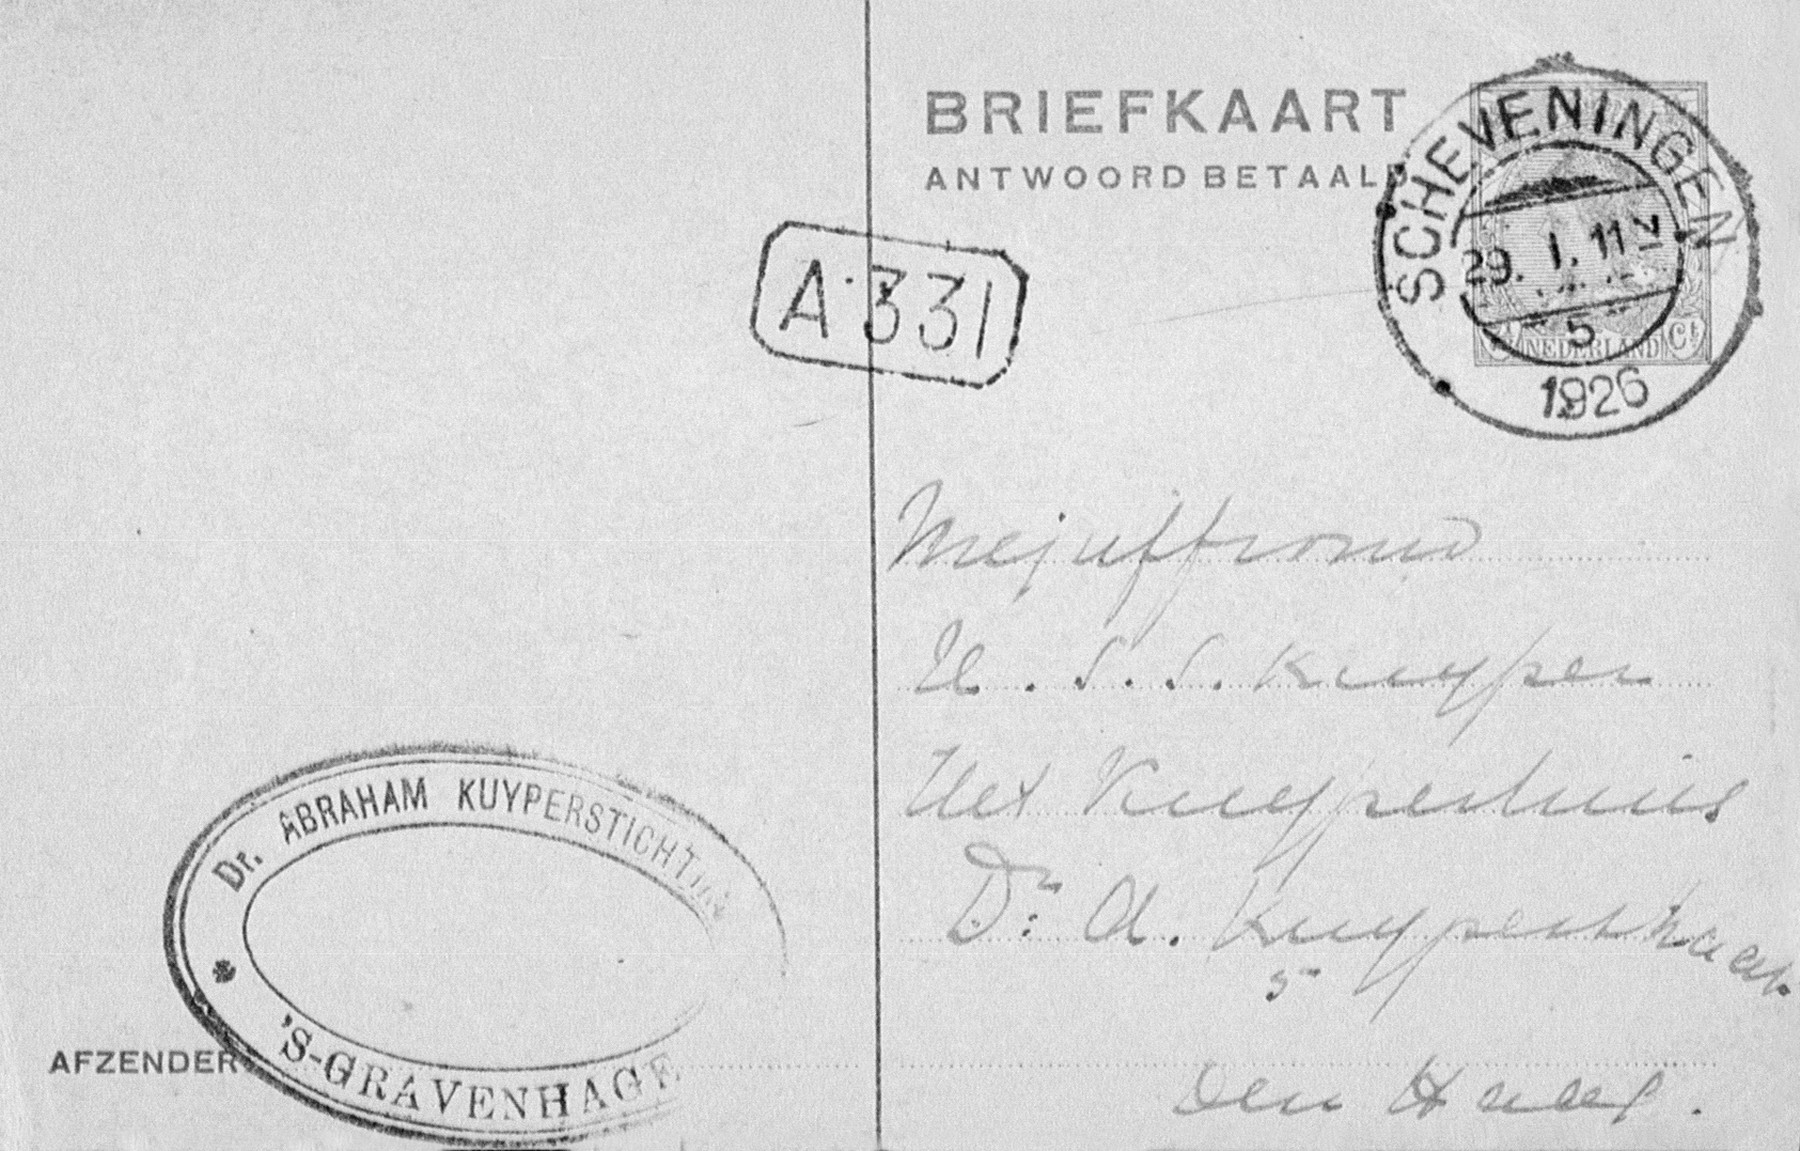 BRIEFKAART
ANTWOORD BETAALD
SCHEVENINGEN
29. 1. 11 V
5
1926
NEDERLAND Ct
A·331
Mejuffrouw
H. S. S. Kuyper
Het Kuyperhuis
Dr. A. Kuyperstraat
5
Den Haag.
Dr. ABRAHAM KUYPERSTICHTING
'S-GRAVENHAGE
AFZENDER